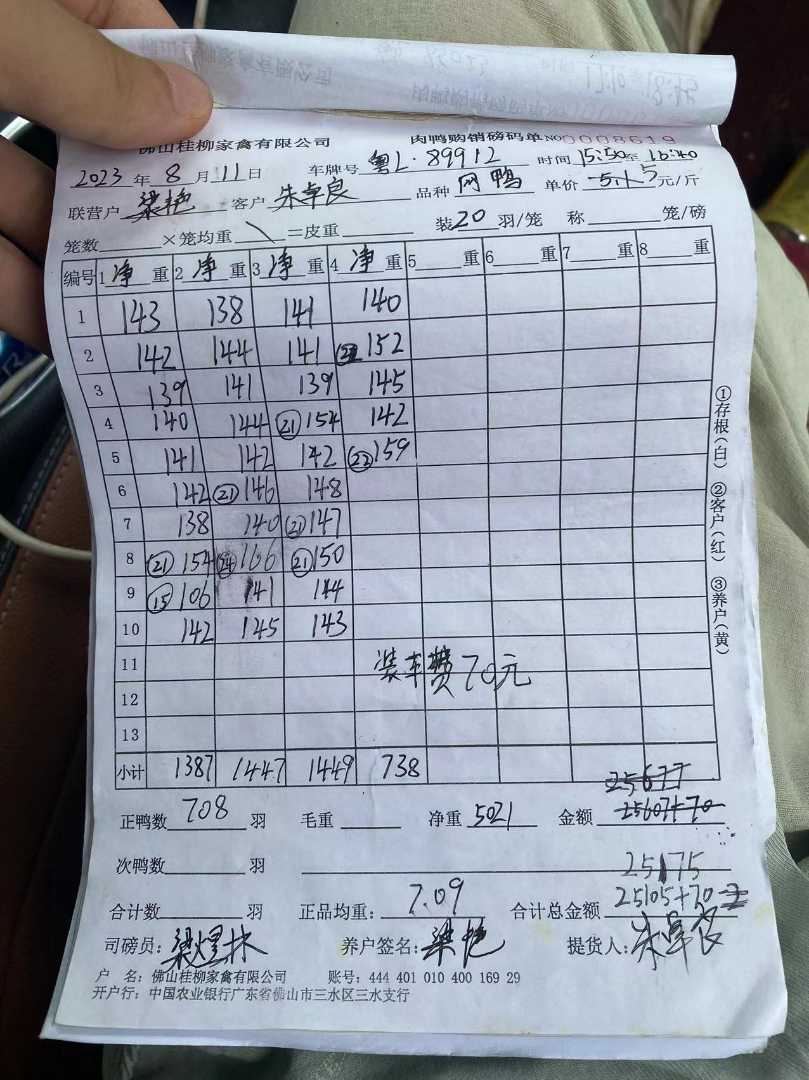 佛山桂柳家禽有限公司 肉鸭购销磅码单 NO 0008619
2023 年 8 月 11 日 车牌号 粤L·89912 时间 15:50至 16:40
联营户 梁艳 客户 朱卓良 品种 网鸭 单价 5 元/斤
笼数 ×笼均重 \ =皮重 装 20 羽/笼 称 笼/磅
编号 1 净 重 2 净 重 3 净 重 4 净 重 5 重 6 重 7 重 8 重
1 143 138 141 140
2 142 144 141 (22) 152
3 139 141 139 145
4 140 144 (21) 154 142
5 141 142 142 (22) 159
6 142 (21) 146 148
7 138 140 (21) 147
8 (21) 154 (24) 166 (21) 150
9 (15) 106 141 144
10 142 145 143
11 装车费70元
12
13
小计 1387 1447 1449 738
25677
正鸭数 708 羽 毛重 净重 5021 金额 25607+70
次鸭数 羽 25175
合计数 羽 正品均重: 7.09 合计总金额 25105+70
司磅员: 梁煌林 养户签名: 梁艳 提货人: 朱卓良
户 名: 佛山桂柳家禽有限公司 账号: 444 401 010 400 169 29
开户行: 中国农业银行广东省佛山市三水区三水支行
①存根(白) ②客户(红) ③养户(黄)